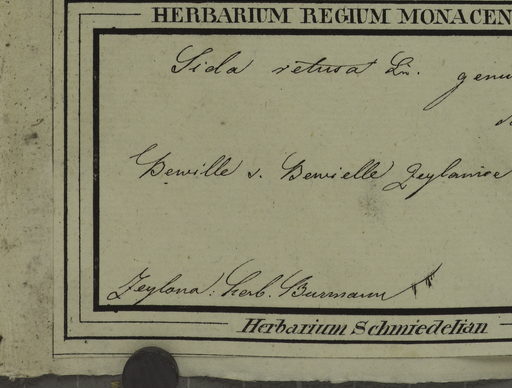 HERBARIUM REGIUM MONACEN
Sida retusa Lin. genu
Bewille s. Bewielle Zeylanice
Zeylona: herb. Burmann
Herbarium Schmiedelian